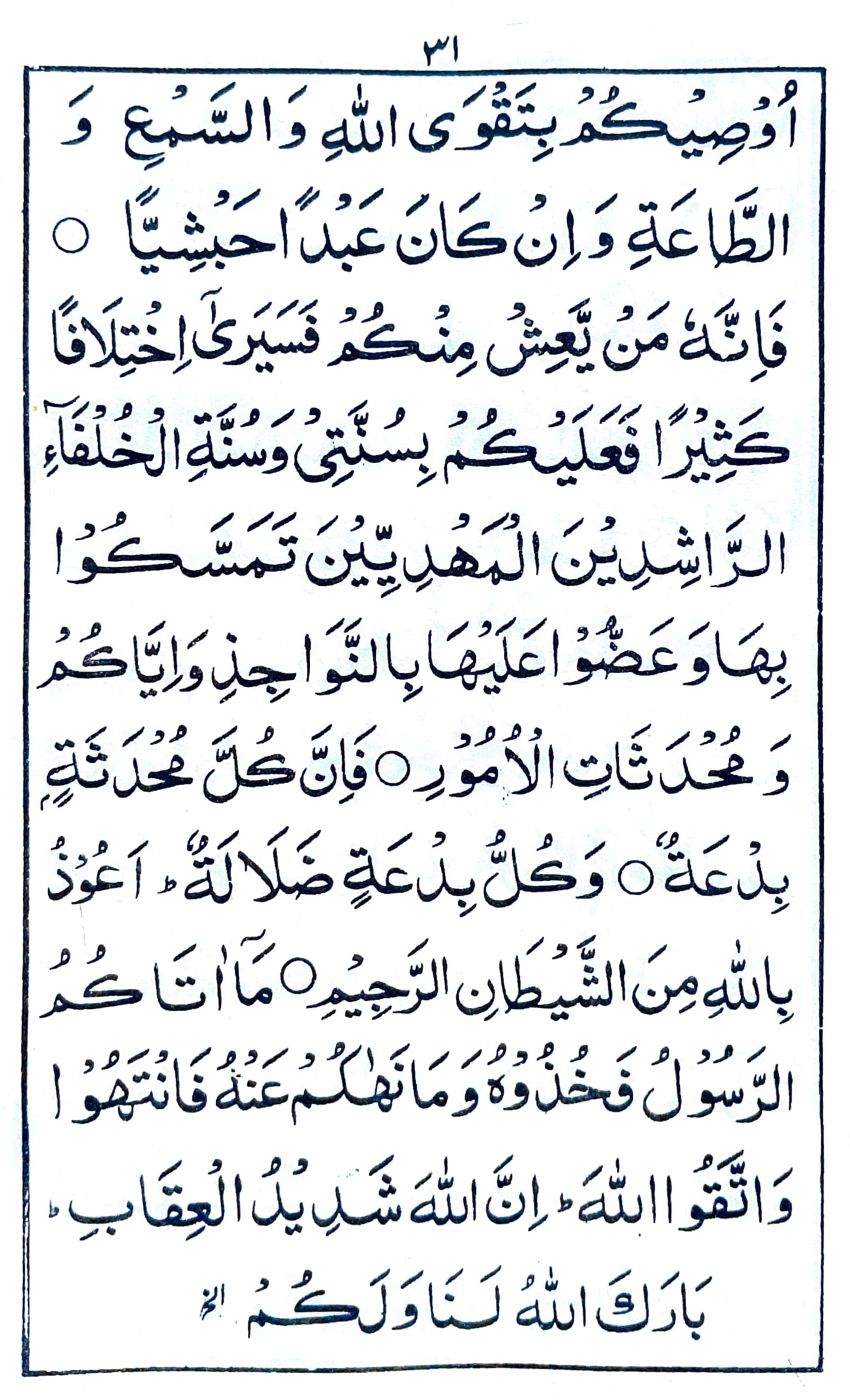 ٣١
اُوْصِيْكُمْ بِتَقْوَى اللّٰهِ وَالسَّمْعِ وَ
الطَّاعَةِ وَاِنْ كَانَ عَبْدًا حَبْشِيًّا ○
فَاِنَّهٗ مَنْ يَّعِشْ مِنْكُمْ فَسَيَرٰٓى اِخْتِلَافًا
كَثِيْرًا فَعَلَيْكُمْ بِسُنَّتِىْ وَسُنَّةِ الْخُلَفَآءِ
الرَّاشِدِيْنَ الْمَهْدِيِّيْنَ تَمَسَّكُوْا
بِهَا وَعَضُّوْا عَلَيْهَا بِالنَّوَاجِذِ وَاِيَّاكُمْ
وَمُحْدَثَاتِ الْاُمُوْرِ ○ فَاِنَّ كُلَّ مُحْدَثَةٍۭ
بِدْعَةٌ ○ وَكُلُّ بِدْعَةٍ ضَلَالَةٌ ؕ اَعُوْذُ
بِاللّٰهِ مِنَ الشَّيْطَانِ الرَّجِيْمِ ○ مَآ اٰتَاكُمُ
الرَّسُوْلُ فَخُذُوْهُ وَمَا نَهٰكُمْ عَنْهُ فَانْتَهُوْا
وَاتَّقُوا اللّٰهَ ؕ اِنَّ اللّٰهَ شَدِيْدُ الْعِقَابِ ؕ
بَارَكَ اللّٰهُ لَنَا وَلَكُمْ الخ